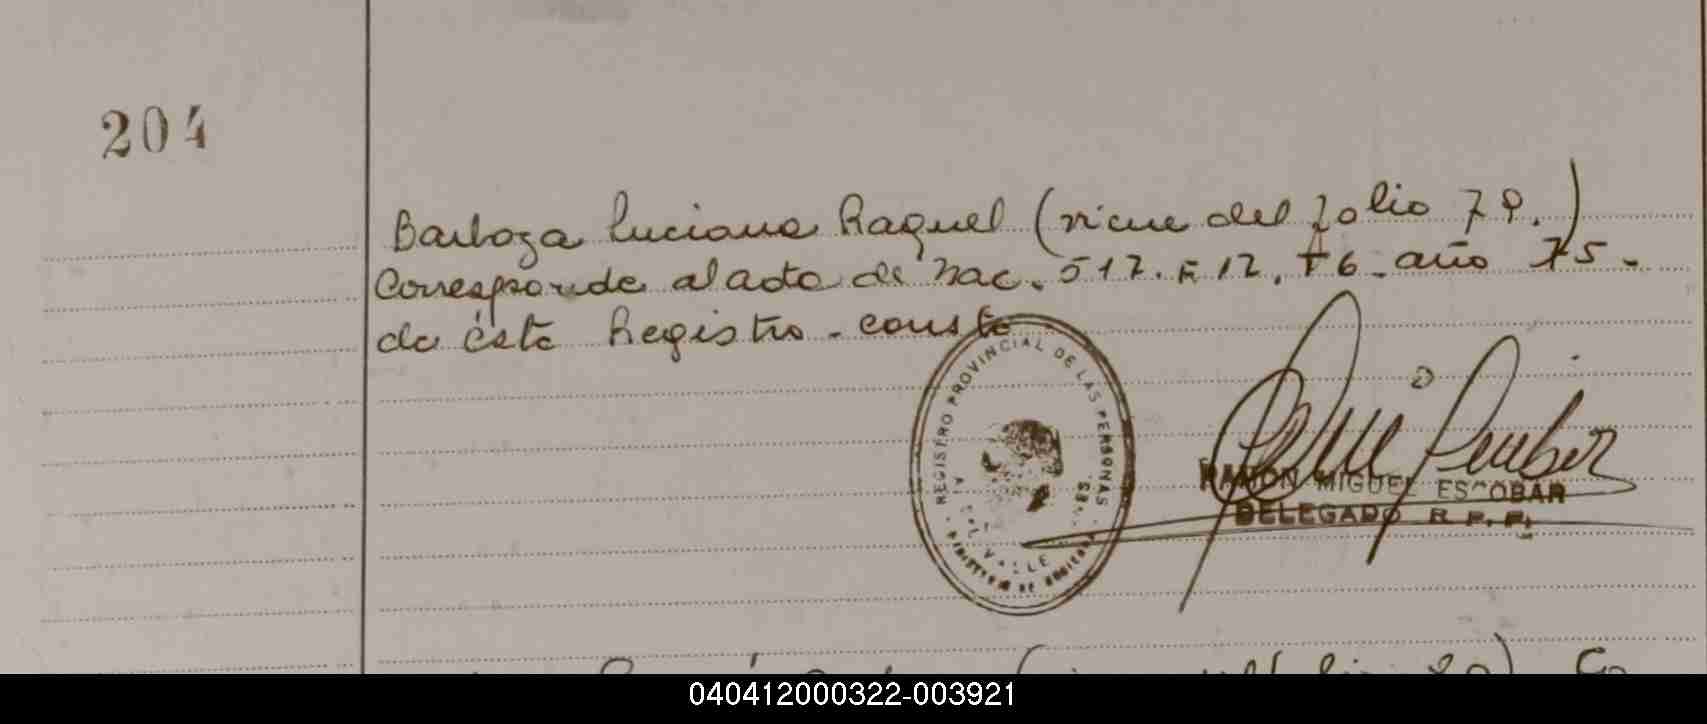 204
Barboza Luciana Raquel (viene del folio 79.)
Corresponde al acta de Nac. 517. F 12. T 6. año 75.-
de ésta Registro - conste
REGISTRO PROVINCIAL DE LAS PERSONAS
VILLA DEL VALLE
MINISTERIO DE
RAMON MIGUEL ESCOBAR
DELEGADO R. P. P.
040412000322-003921